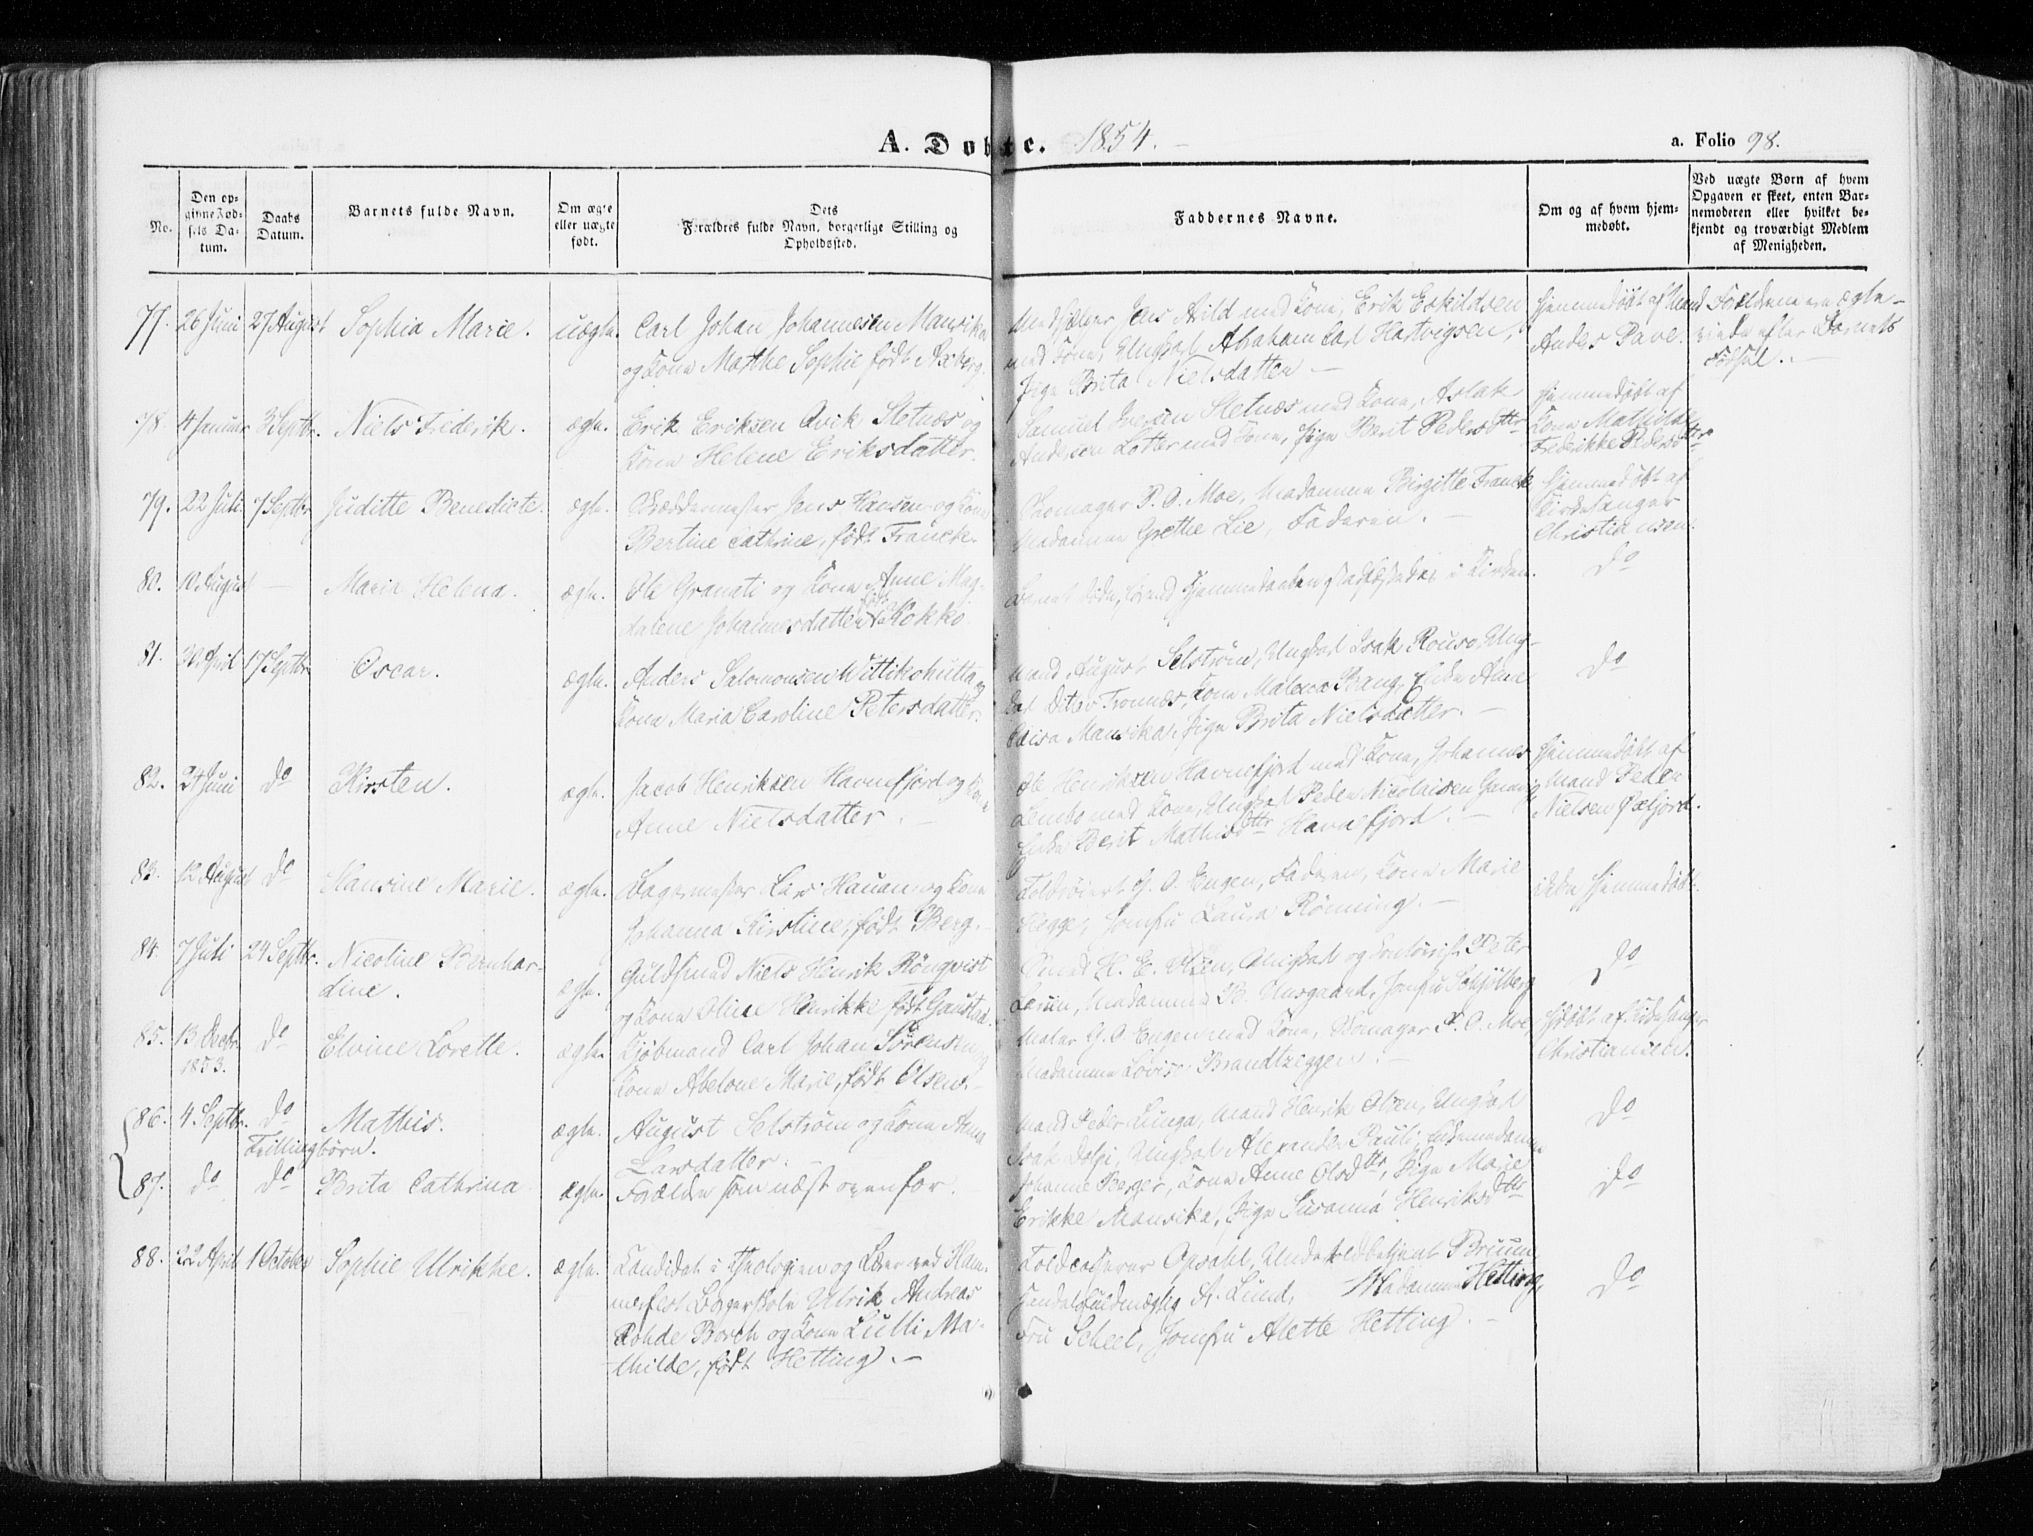 A. Døbte. 1854. a. Folio 98.
No.
Den op-
givne Fød-
sels Da-
tum.
Daabs
Datum.
Barnets fulde Navn.
Om ægte
eller uægte
født.
Dets
Forældres fulde Navn, borgerlige Stilling og
Opholdssted.
Faddernes Navne.
Om og af hvem hjem-
medøbt.
Ved uægte Børn af hvem
Opgaven er skeet, enten Bar-
nemoderen eller hvilket be-
kjendt og troværdigt Medlem
af Menigheden.
77. 26 Juni 27 August Sophia Marie. uægte. Carl Johan Johannesen Mansika
og Kone Marthe Sophie født Axberg.
Jens Hild med Kone, Erik Eskildsen
med Kone, Ungkarl Abraham Carl Hartvigsen,
Pige Brita Nielsdatter. —
Hjemmedøbt af Mand
Anders Pave.
Forældrene ere ægte-
viede efter Barnets
Fødsel. —
78. 4 Januar 3 Septbr. Niels Frederik. ægte. Erik Eriksen Qvik Sletnæs og
Kone Helene Eriksdatter.
Samuel Iversen Sletnæs med Kone, Aslak
Andersen Lotter med Kone, Pige Berit Pedersdtr.
Hjemmedøbt af
Kone Mathilde
Frederikke Pedersdtr.
79. 22 Juli 7 Septbr. Juditte Benedicte. ægte. Bøddermester Jens Hansen og Kone
Bertine Cathrine, født Franck.
Skomager P. O. Moe, Madamme Birgitte Franck
Madamme Grethe Lie, Faderen. —
Hjemmedøbt af
Kirkesanger
Christiansen.
80. 10 August — Maria Helena. ægte. Ole Granati og Kone Anne Mag-
dalene Johannesdatter født Kokko.
Barnet døde, førend Hjemmedaaben stadfæstedes i Kirken.
Do
81. 30 April 17 Septbr. Oscar. ægte. Anders Salomonsen Wittikohutta og
Kone Maria Caroline Petersdatter.
Mand August Selstrøm, Ungkarl Isak Rouso, Ung-
karl Ditlev Tromnæs, Kone Malena Bang, Enke Ane
Caisa Mansika, Pige Brita Nielsdatter. —
Do
82. 24 Juni Do Kirsten. ægte. Jacob Henriksen Havnefjord og Kone
Anne Nielsdatter. —
Ole Henriksen Havnefjord med Kone, Johannes
Lembo med Kone, Ungkarl Peder Nicolaisen Gamvig
Enke Berit Mathisdtr Havnefjord. —
Hjemmedøbt af
Mand Peder
Nielsen Øxfjord.
83. 12 August Do Hansine Marie. ægte. Bagermester Lars Hauan og Kone
Johanna Kirstine, født Berg. —
Toldrøiert G. O. Engen, Faderen, Kone Marie
Hegge, Jomfru Laura Rönning. —
ikke hjemmedøbt.
84. 7 Juli 24 Septbr. Nicoline Bernhar-
dine. ægte. Guldsmed Niels Henrik Rönqvist
og Kone Oline Henrikke født Gaustad.
Smed H. E. Olsen, Ungkarl og Contorist Peter
Lerun, Madamme B. Unsgaard, Jomfru Schjølberg
Do
85. 13 Decbr.
1853. Do Elvine Lorette. ægte. Kjøbmand Carl Johan Sörensen og
Kone Abelone Marie, født Olsen. —
Maler G. O. Engen med Kone, Skomager P. O. Moe,
Madamme Lovise Brandtzeggen. —
Hjdøbt af Kirkesanger
Christiansen.
86. 4 Septbr. Do Mathis. ægte. August Selström og Kone Anna
Larsdatter.
Tvillingbørn.
Mand Peder Kunga, Mand Henrik Olsen, Ungkarl
Isak Dolpi, Ungkarl Alexander Pauli, Enkemadamme
Do
87. do do Brita Cathrina. ægte. Forældre som næst ovenfor.
Johanne Berger, Kone Anne Olsdtr, Pige Marie
Erikke Mansika, Pige Susanna Henriksdtr
Do
88. 22 April 1 October Sophie Ulrikke. ægte. Candidat i Theologien og Lærer ved Ham-
merfest Borgerskole Ulrik Andreas
Rohde Borch og Kone Lulli Ma-
thilde, født Hetting. —
Toldcasserer Opdahl, Undertoldbetjent Bruun,
Handelsfuldmægtig A. Lund, Madamme Hetting,
Fru Scheel, Jomfru Alette Hetting. —
Do